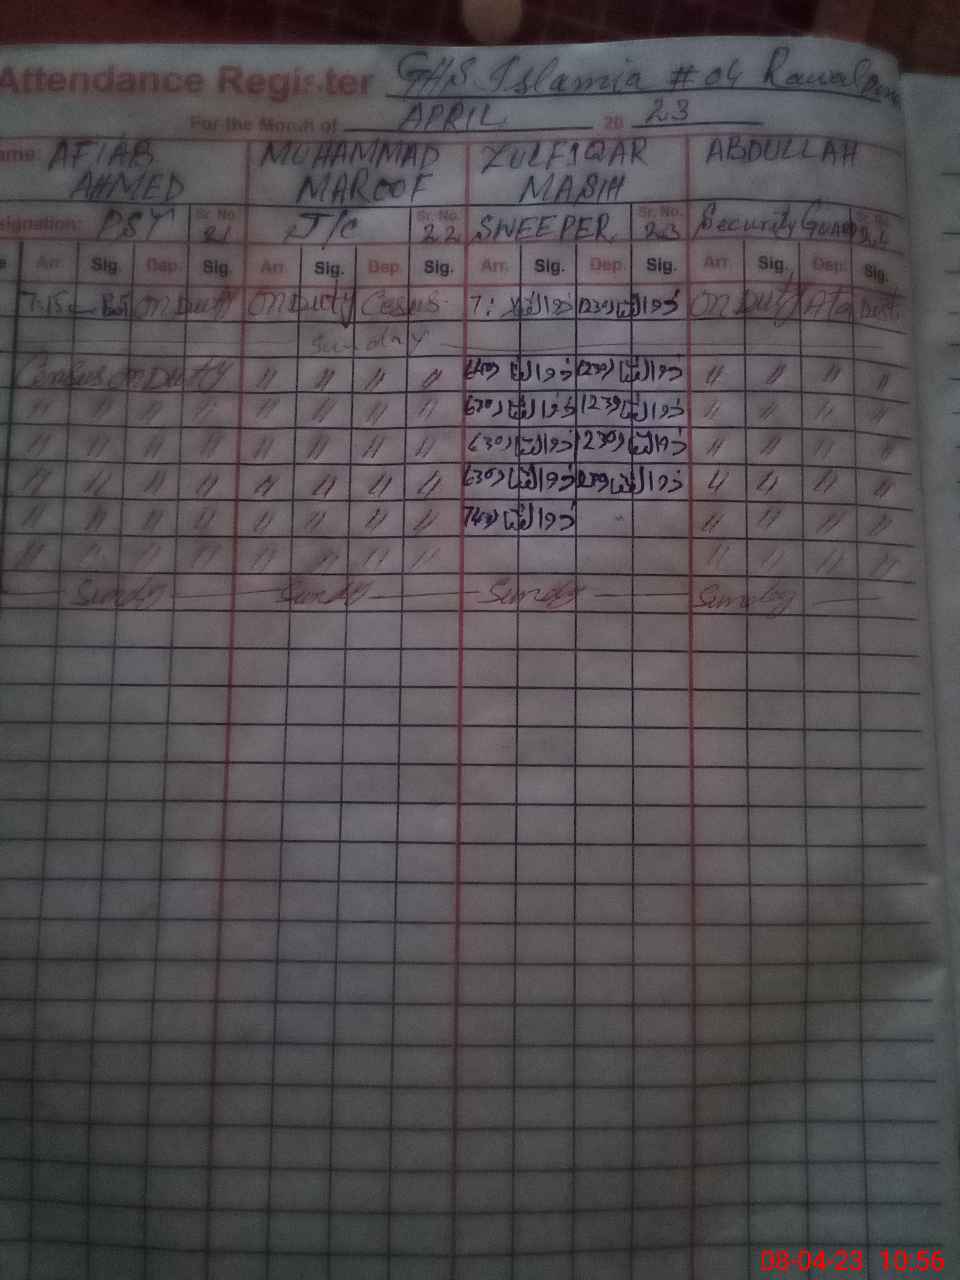 Attendance Register GHS. Islamia # 04
For the Month of APRIL 20 23
ame: AFTAB AHMED MUHAMMAD MAROOF ZULFIQAR MASIH ABDULLAH
signation: Sr. No. 21 J/C Sr. No. 22 SWEEPER Sr. No. 23 Security Guard Sr. No.
e Arr. Sig. Dep. Sig. Arr. Sig. Dep. Sig. Arr. Sig. Dep. Sig. Arr. Sig. Dep. Sig.
7:15 On Duty On Duty 7: ذوالفقار 1230 ذوالفقار On Duty
Sunday
Census on Duty 〃 〃 〃 〃 ذوالفقار 1230 ذوالفقار 〃 〃 〃 〃
〃 〃 〃 〃 〃 〃 〃 〃 630 ذوالفقار 1230 ذوالفقار 〃 〃 〃 〃
〃 〃 〃 〃 〃 〃 〃 〃 630 ذوالفقار 1230 ذوالفقار 〃 〃 〃 〃
〃 〃 〃 〃 〃 〃 〃 〃 630 ذوالفقار ذوالفقار 〃 〃 〃 〃
〃 〃 〃 〃 〃 〃 〃 〃 ذوالفقار 〃 〃 〃 〃
〃 〃 〃 〃 〃 〃 〃 〃 〃 〃 〃 〃
08-04-23 10:56